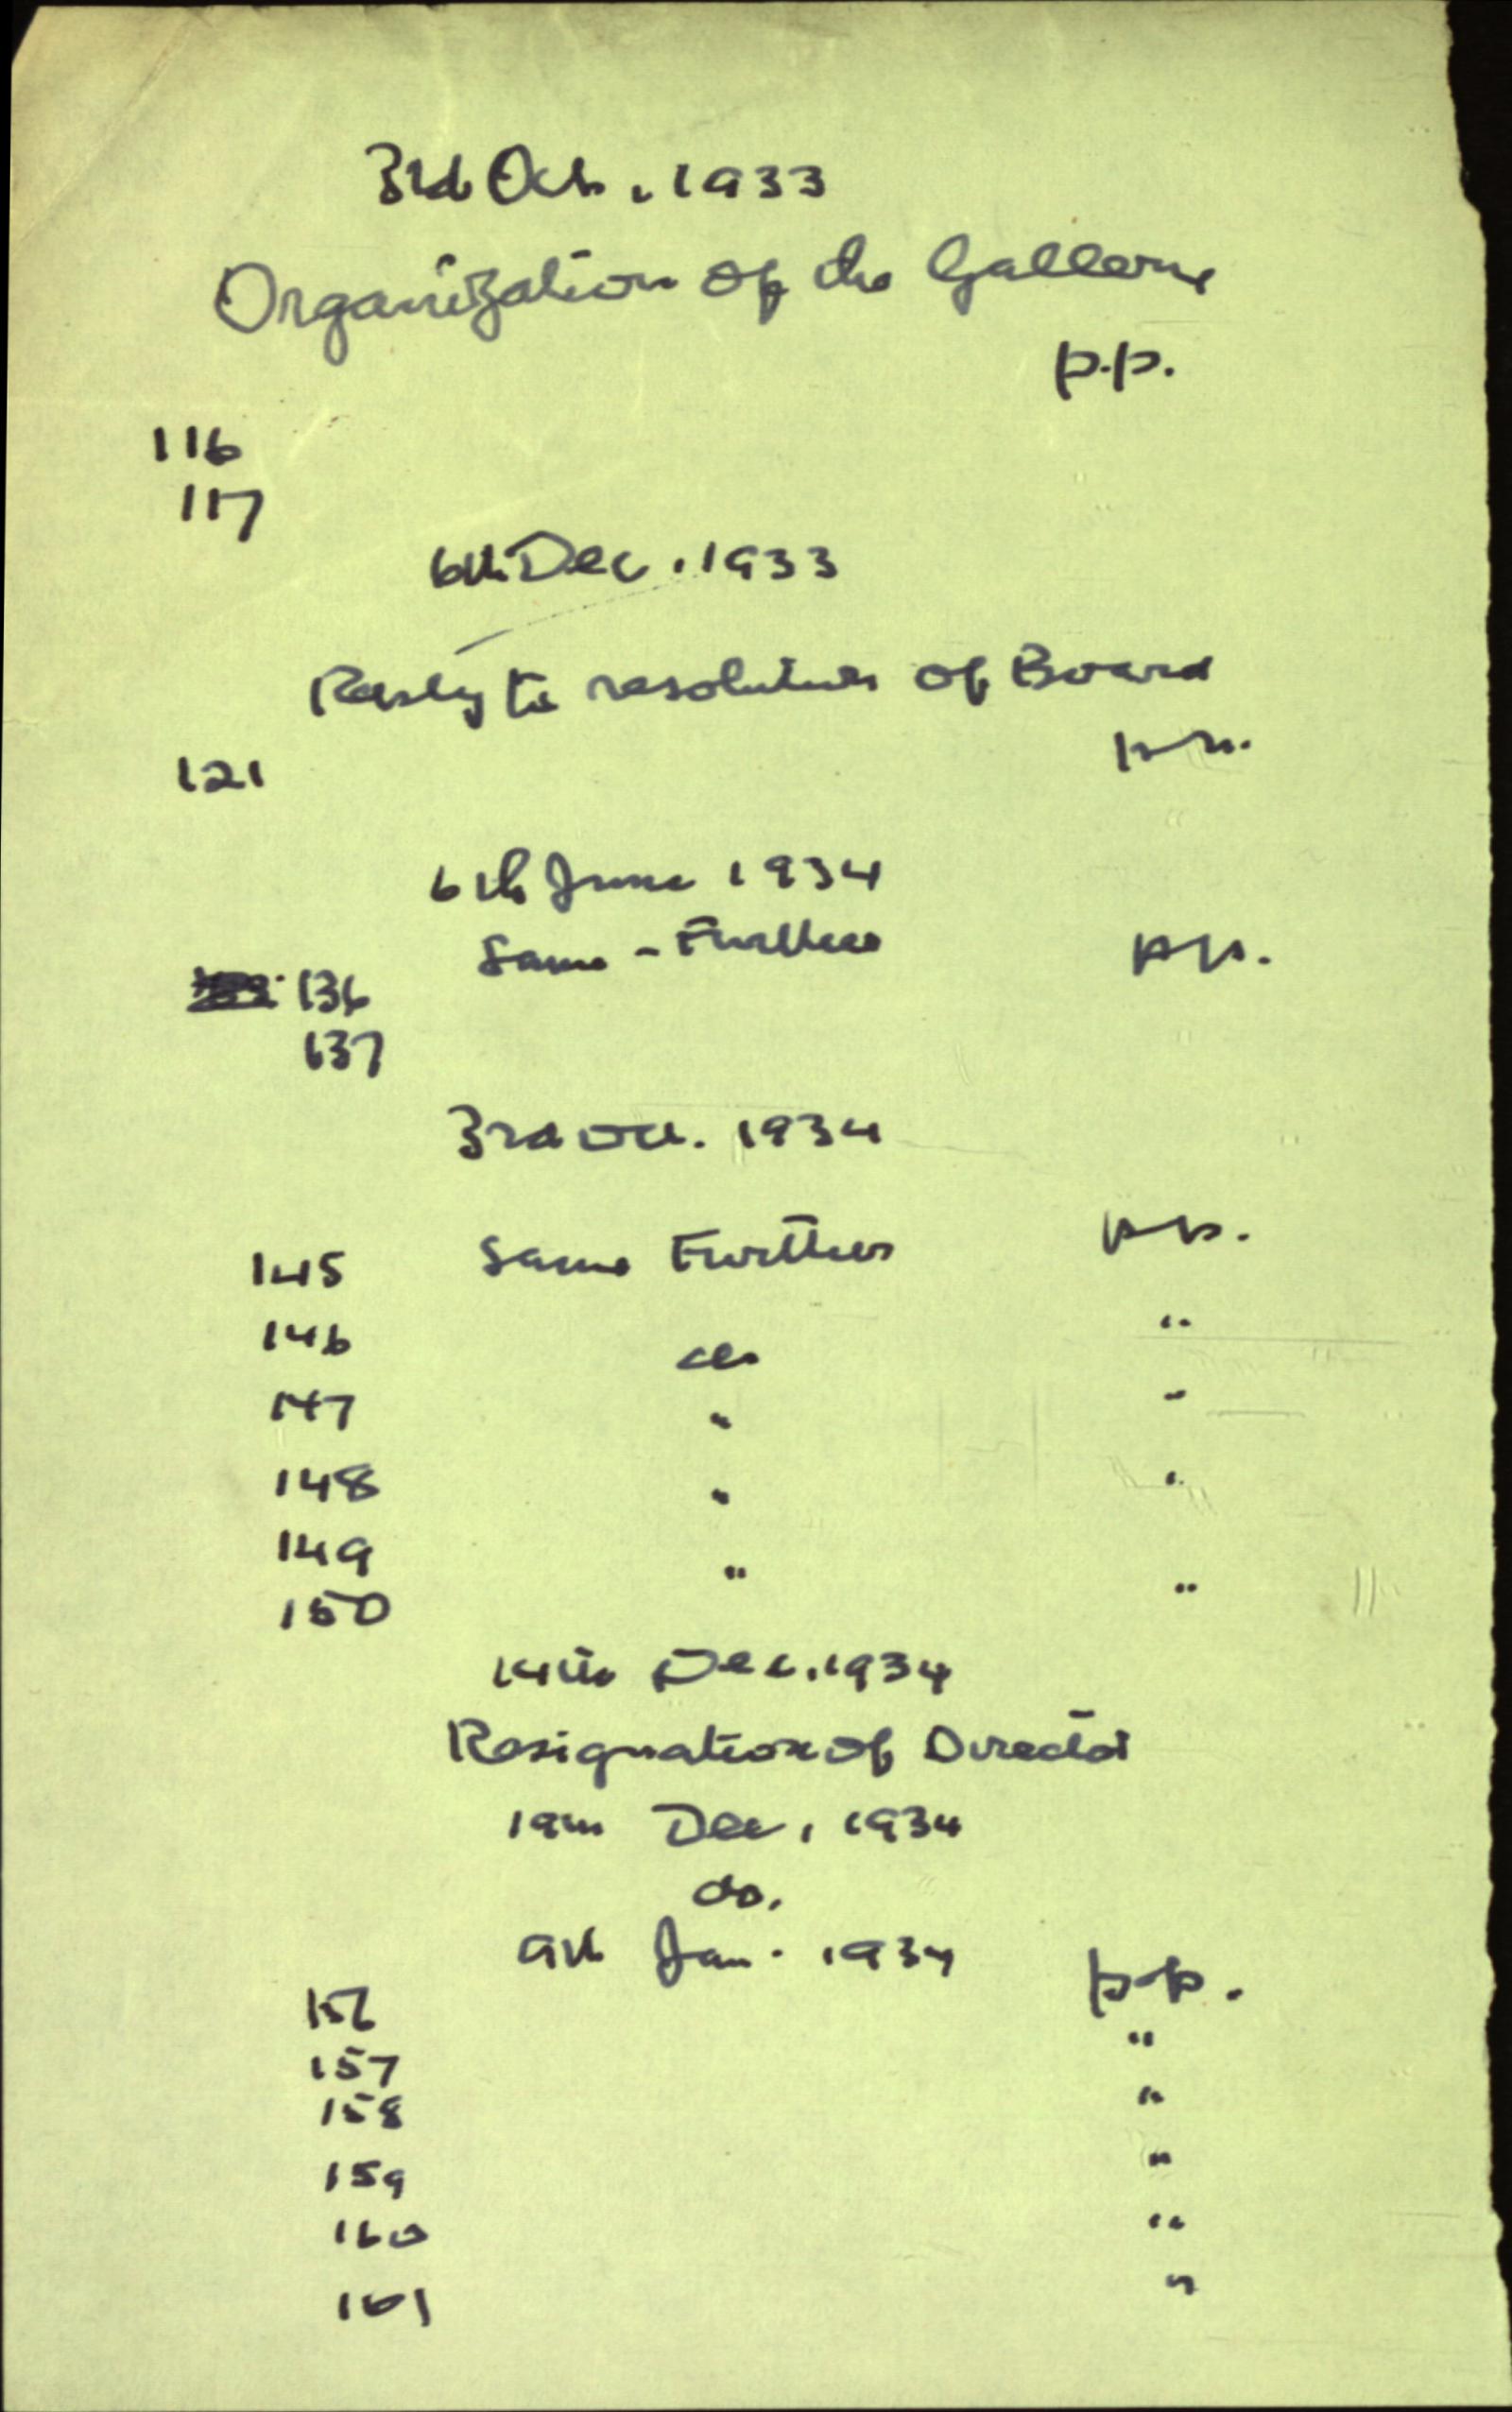 3rd Oct. 1933
Organization of the Gallery
p.p.
116
117
6th Dec. 1933
Reply to resolution of Board
p.p.
121
6th June 1934
Same - Further p.p.
136
137
3rd Oct. 1934
145 Same Further p.p.
146 do "
147 " "
148 " "
149 "
150 "
14th Dec. 1934
Resignation of Director
19th Dec, 1934
do.
9th Jan. 1934 p.p.
156 "
157
158 "
159 "
160 "
161 "